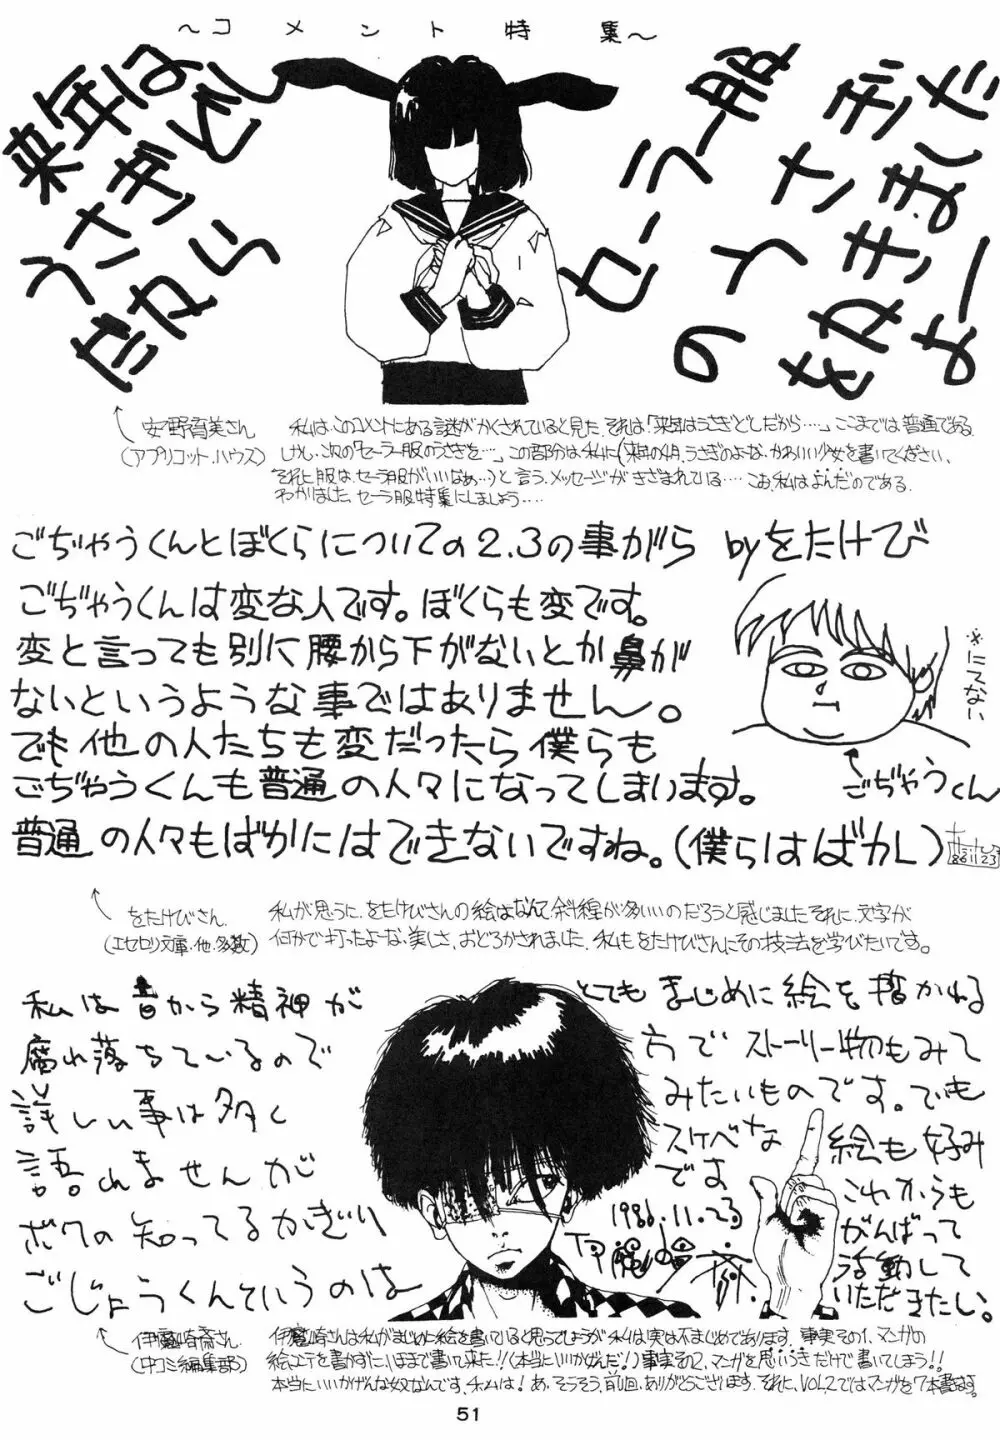 ～コメント特集～
来年は
うさぎどし
だから
セーラー服
のうさぎ
をかきまし
だよー
安野育美さん
(アプリコット・ハウス)
私は、このコメントにある謎がかくされていると見た。それは「来年はうさぎどしだから‥‥」ここまでは普通である。
しかし、次の「セーラー服のうさぎを…」この部分は、私に(来年の4月、うさぎのよーな、かわいい少女を書いてください、
それに服は、セーラ服がいいなぁ…)と言う、メッセージがきざまれている‥‥こお、私はよんだのである。
わかりました、セーラ服特集にしましょう‥‥
ごぢゃうくんとぼくらについての2.3の事がら byをたけび
ごぢゃうくんは変な人です。ぼくらも変です。
変と言っても別に腰から下がないとか鼻が
ないというような事ではありません。
でも他の人たちも変だったら僕らも
ごぢゃうくんも普通の人々になってしまいます。
普通の人々もばかにはできないですね。(僕らはばかし)
86.11.23
※にてない
ごぢゃうくん
をたけびさん
(エセセリ文庫・他・多数)
私が思うに、をたけびさんの絵はなんて斜線が多いいのだろうと感じました。それに、文字が
何かで打ったよーな、美しさ、おどろかされました、私もをたけびさんにその技法を学びたいです。
私は昔から精神が
腐れ落ちているので
詳しい事は多く
語れませんが
ボクの知ってるかぎり
ごじょうくんていうのは
とてもまじめに絵を描かれる
方でストーリー物もみて
みたいものです。でも
スケベな絵も好み
では
これからも
がんばって
活動して
いただきたい。
1986.11.23
伊魔崎斎
伊魔崎斎さん
(中コミ編集部)
伊魔崎さんは私がまじめに絵を書いていると思ってしょうが私は実は不まじめであります。事実その1、マンガの
絵コンテを書かずに、いままで書いて来た!!(本当にいいかげんだ!)事実その2、マンガを思いつきだけで書いてしまう!!
本当にいいかげんな奴なんです、私ムは!あ、そうそう、前回、ありがとうございます。それに、VOL.2ではマンガを7本書きます。
51